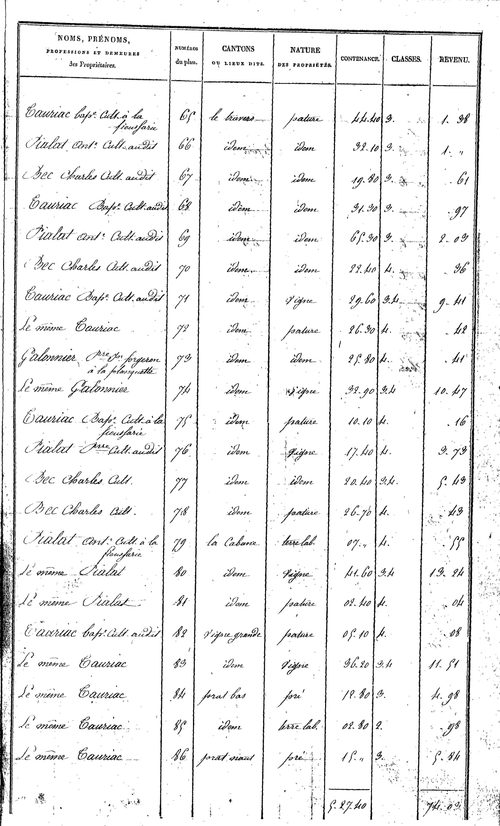 NOMS, PRÉNOMS, PROFESSIONS ET DEMEURES des Propriétaires. NUMÉROS du plan. CANTONS OU LIEUX DITS. NATURE DES PROPRIÉTÉS. CONTENANCE. CLASSES. REVENU.
Cauriac Bapt. Cult. à la 65 le travers pature 44.40 3. 1. 38
Pialat Ant. Cult. audit 66 idem idem 32.10 3. 1. "
Bec Charles Cult. audit 67 idem idem 19.80 3. 61
Cauriac Bapt. Cult. audit 68 idem idem 31.30 3. 97
Pialat Ant. Cult. audit 69 idem idem 65.30 3. 2. 03
Bec Charles Cult. audit 70 idem idem 22.40 4. 36
Cauriac Bapt. Cult. audit 71 idem Vigne 29.60 3.4 9. 41
Le même Cauriac 72 idem pature 26.30 4. 42
Galonnier Pre Jn forgeron 73 idem idem 25.80 4. 41
à la planquette
Le même Galonnier 74 idem Vigne 32.90 3.4 10. 47
Cauriac Bapt. Cult. à la 75 idem pature 10.10 4. 16
Pialat Pre Cult. audit 76 idem Vigne 17.40 4. 3. 73
Bec Charles Cult. 77 idem idem 20.40 3.4 5. 43
Bec Charles Cult. 78 idem pature 26.70 4. 43
Pialat Ant. Cult. à la 79 la Cabane terre lab. 07. " 4. 55
Le même Pialat 80 idem Vigne 41.60 3.4 13. 24
Le même Pialat 81 idem pature 02.40 4. 04
Cauriac Bapt. Cult. audit 82 Vigne grande pature 05.10 4. 08
Le même Cauriac 83 idem Vigne 36.20 3.4 11. 51
Le même Cauriac 84 prat bas pré 12.80 3. 4. 98
Le même Cauriac 85 idem terre lab. 02.80 2. 98
Le même Cauriac 86 prat naut pré 15. " 3. 5. 84
5.27.40 74. 03